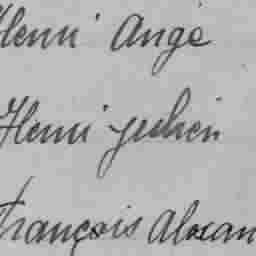 Henri Ange
Henri julien
François alexan